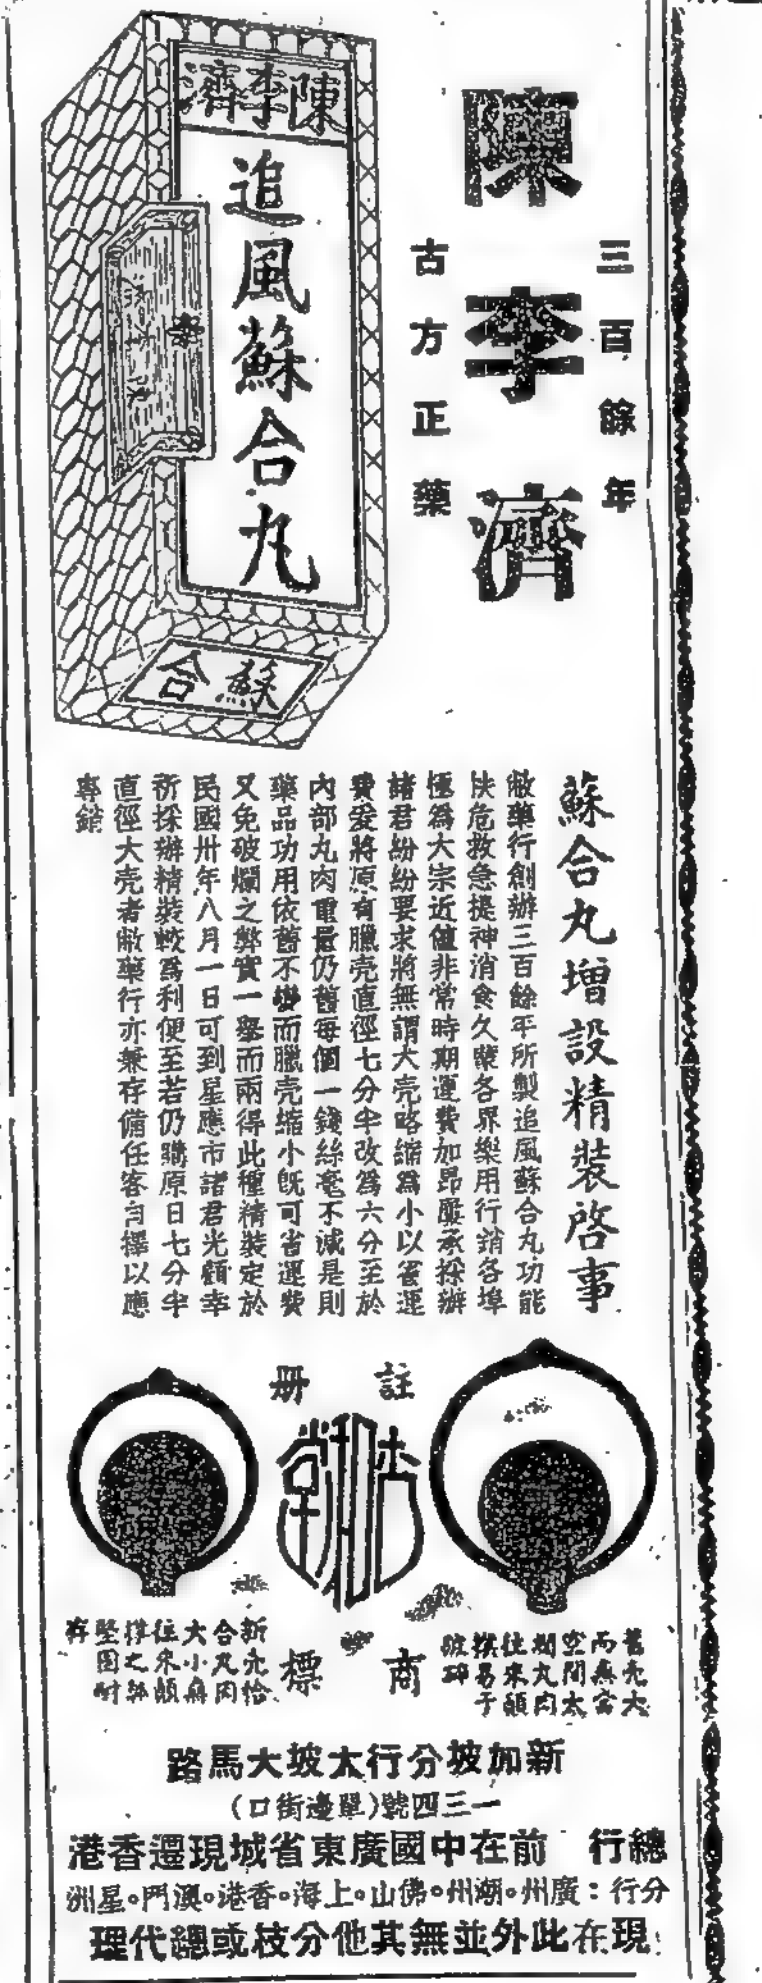 三百餘年
陳李濟
古方正藥
陳李濟
追風蘇合丸
蘇合
蘇合丸增設精裝啓事
敝藥行創辦三百餘年所製追風蘇合丸功能
扶危救急提神消食久蒙各界樂用行銷各埠
極為大宗近值非常時期運費加昂屢承採辦
諸君紛紛要求將無謂大壳略縮為小以省運
費爰將原有臘壳直徑七分半改為六分至於
內部丸肉重量仍舊每個一錢絲毫不減是則
藥品功用依舊不變而臘壳縮小既可省運費
又免破爛之弊實一舉而兩得此種精裝定於
民國卅年八月一日可到星應市諸君光顧幸
祈採辦精裝較為利便至若仍購原日七分半
直徑大壳者敝藥行亦兼存備任客自擇以應
專銷
註冊
商標
舊壳大
而無當
空間太
濶丸肉
往來顛
撲易于
破碎
新壳恰
合丸肉
大小無
往來顛
撲之弊
堅固耐
存
新加坡分行大坡大馬路
一三四號(單邊街口)
總行 前在中國廣東省城現遷香港
分行：廣州。潮州。佛山。上海。香港。澳門。星洲
現在此外並無其他分枝或總代理